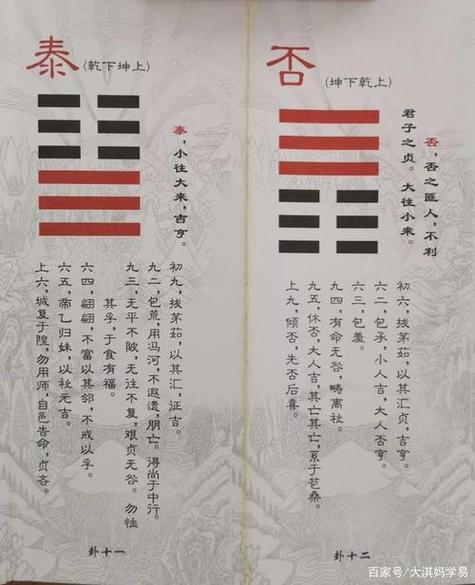 泰(乾下坤上)
泰，小往大来，吉亨。
初九，拔茅茹，以其汇，征吉。
九二，包荒，用冯河，不遐遗，朋亡。得尚于中行。
九三，无平不陂，无往不复，艰贞无咎。勿恤
其孚，于食有福。
六四，翩翩，不富以其邻，不戒以孚。
六五，帝乙归妹，以祉元吉。
上六，城复于隍，勿用师，自邑告命，贞吝。
卦十一
否(坤下乾上)
否，否之匪人，不利
君子之贞。大往小来。
初六，拔茅茹，以其汇贞，吉亨。
六二，包承，小人吉，大人否亨。
六三，包羞。
九四，有命无咎，畴离祉。
九五，休否，大人吉，其亡其亡，系于苞桑。
上九，倾否，先否后喜。
卦十二
百家号/大淇妈学易